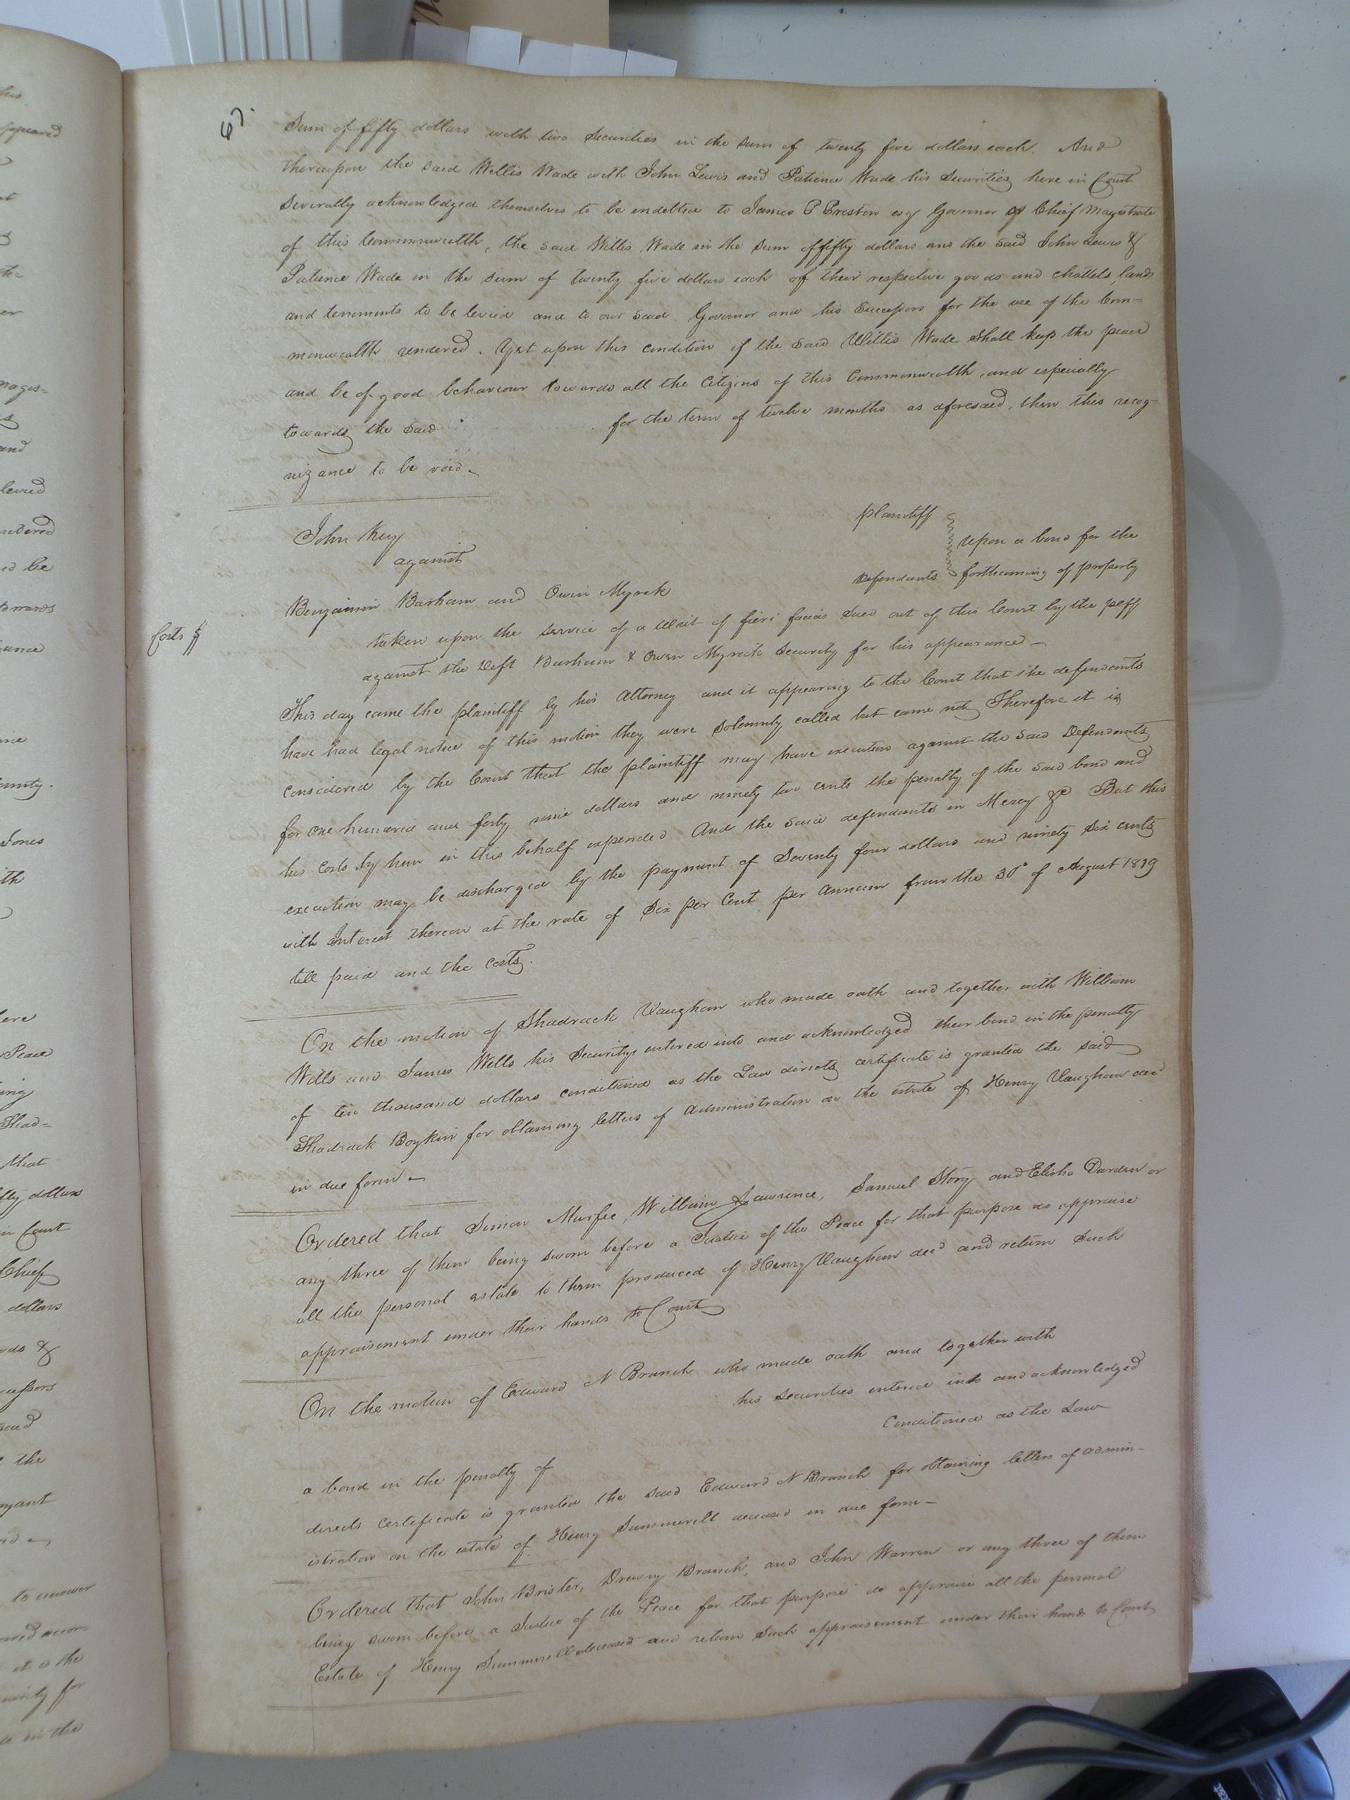 67.
Sum of fifty dollars with two Securities in the sum of twenty five dollars each. And
thereupon the said Willis Wade with John Lewis and Patience Wade his Securities here in Court
Severally acknowledged themselves to be indebted to James P Preston esq Governor or Chief Magistrate
of this Commonwealth, the said Willis Wade in the sum of fifty dollars and the said John Lewis &
Patience Wade in the sum of twenty five dollars each of their respective goods and chattels, lands
and tenements to be levied and to our said Governor and his Successors for the use of the Com=
monwealth rendered. Yet upon this condition if the said Willis Wade shall keep the peace
and be of good behaviour towards all the Citizens of this Commonwealth, and especially
towards the said for the term of twelve months as aforesaid, then this recog=
nizance to be void.
John Key plaintiff
against
Benjamin Barham and Owen Myrick Defendants
upon a bond for the
forthcoming of property
taken upon the service of a Writ of fieri facias Sued out of this Court by the peff
Costs $
against the Deft Barham & Owen Myrick Security for his appearance
This day came the plaintiff by his Attorney and it appearing to the Court that the defendants
have had legal notice of this motion they were Solemnly called but came not Therefore it is
considered by the Court that the plaintiff may have execution against the said Defendants
for one hundred and forty nine dollars and ninety two cents the penalty of the said bond and
his costs by him in this behalf expended And the said defendants in Mercy &c But this
execution may be discharged by the payment of Seventy four dollars and ninety Six cents
with Interest thereon at the rate of Six per Cent per Annum from the 30th of August 1819
till paid and the costs.
On the motion of Shadrach Vaughan who made oath and together with William
Wills and James Wells his Securitys entered into and acknowledged their bond in the penalty
of ten thousand dollars conditioned as the Law directs certificate is granted the said
Shadrack Boykin for obtaining letters of administration on the estate of Henry Vaughan decd
in due form
Ordered that Simon Murfee, William Lawrence, Samuel Story and Elisha Darden or
any three of them being sworn before a Justice of the Peace for that purpose do appraise
all the personal estate to them produced of Henry Vaughan decd and return such
appraisement under their hands to Court
On the motion of Edward N Branch who made oath and together with
his securities entered into and acknowledged
a bond in the penalty of Conditioned as the Law
directs Certificate is granted the said Edward N Branch for obtaining letters of admin=
istration on the estate of Henry Summerell deceased in due form
Ordered that John Brister, Drewry Branch, and John Warren or any three of them
being sworn before a Justice of the Peace for that purpose do appraise all the personal
Estate of Henry Summerell deceased and return such appraisement under their hands to Court